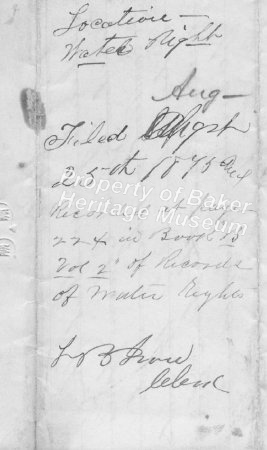 Location –
Water Right
Aug –
Filed
25th 1875 and
Recorded at Page
224 in Book B
Vol 2" of Records
of Water Rights
L B Ison
Clerk
Property of Baker
Heritage Museum